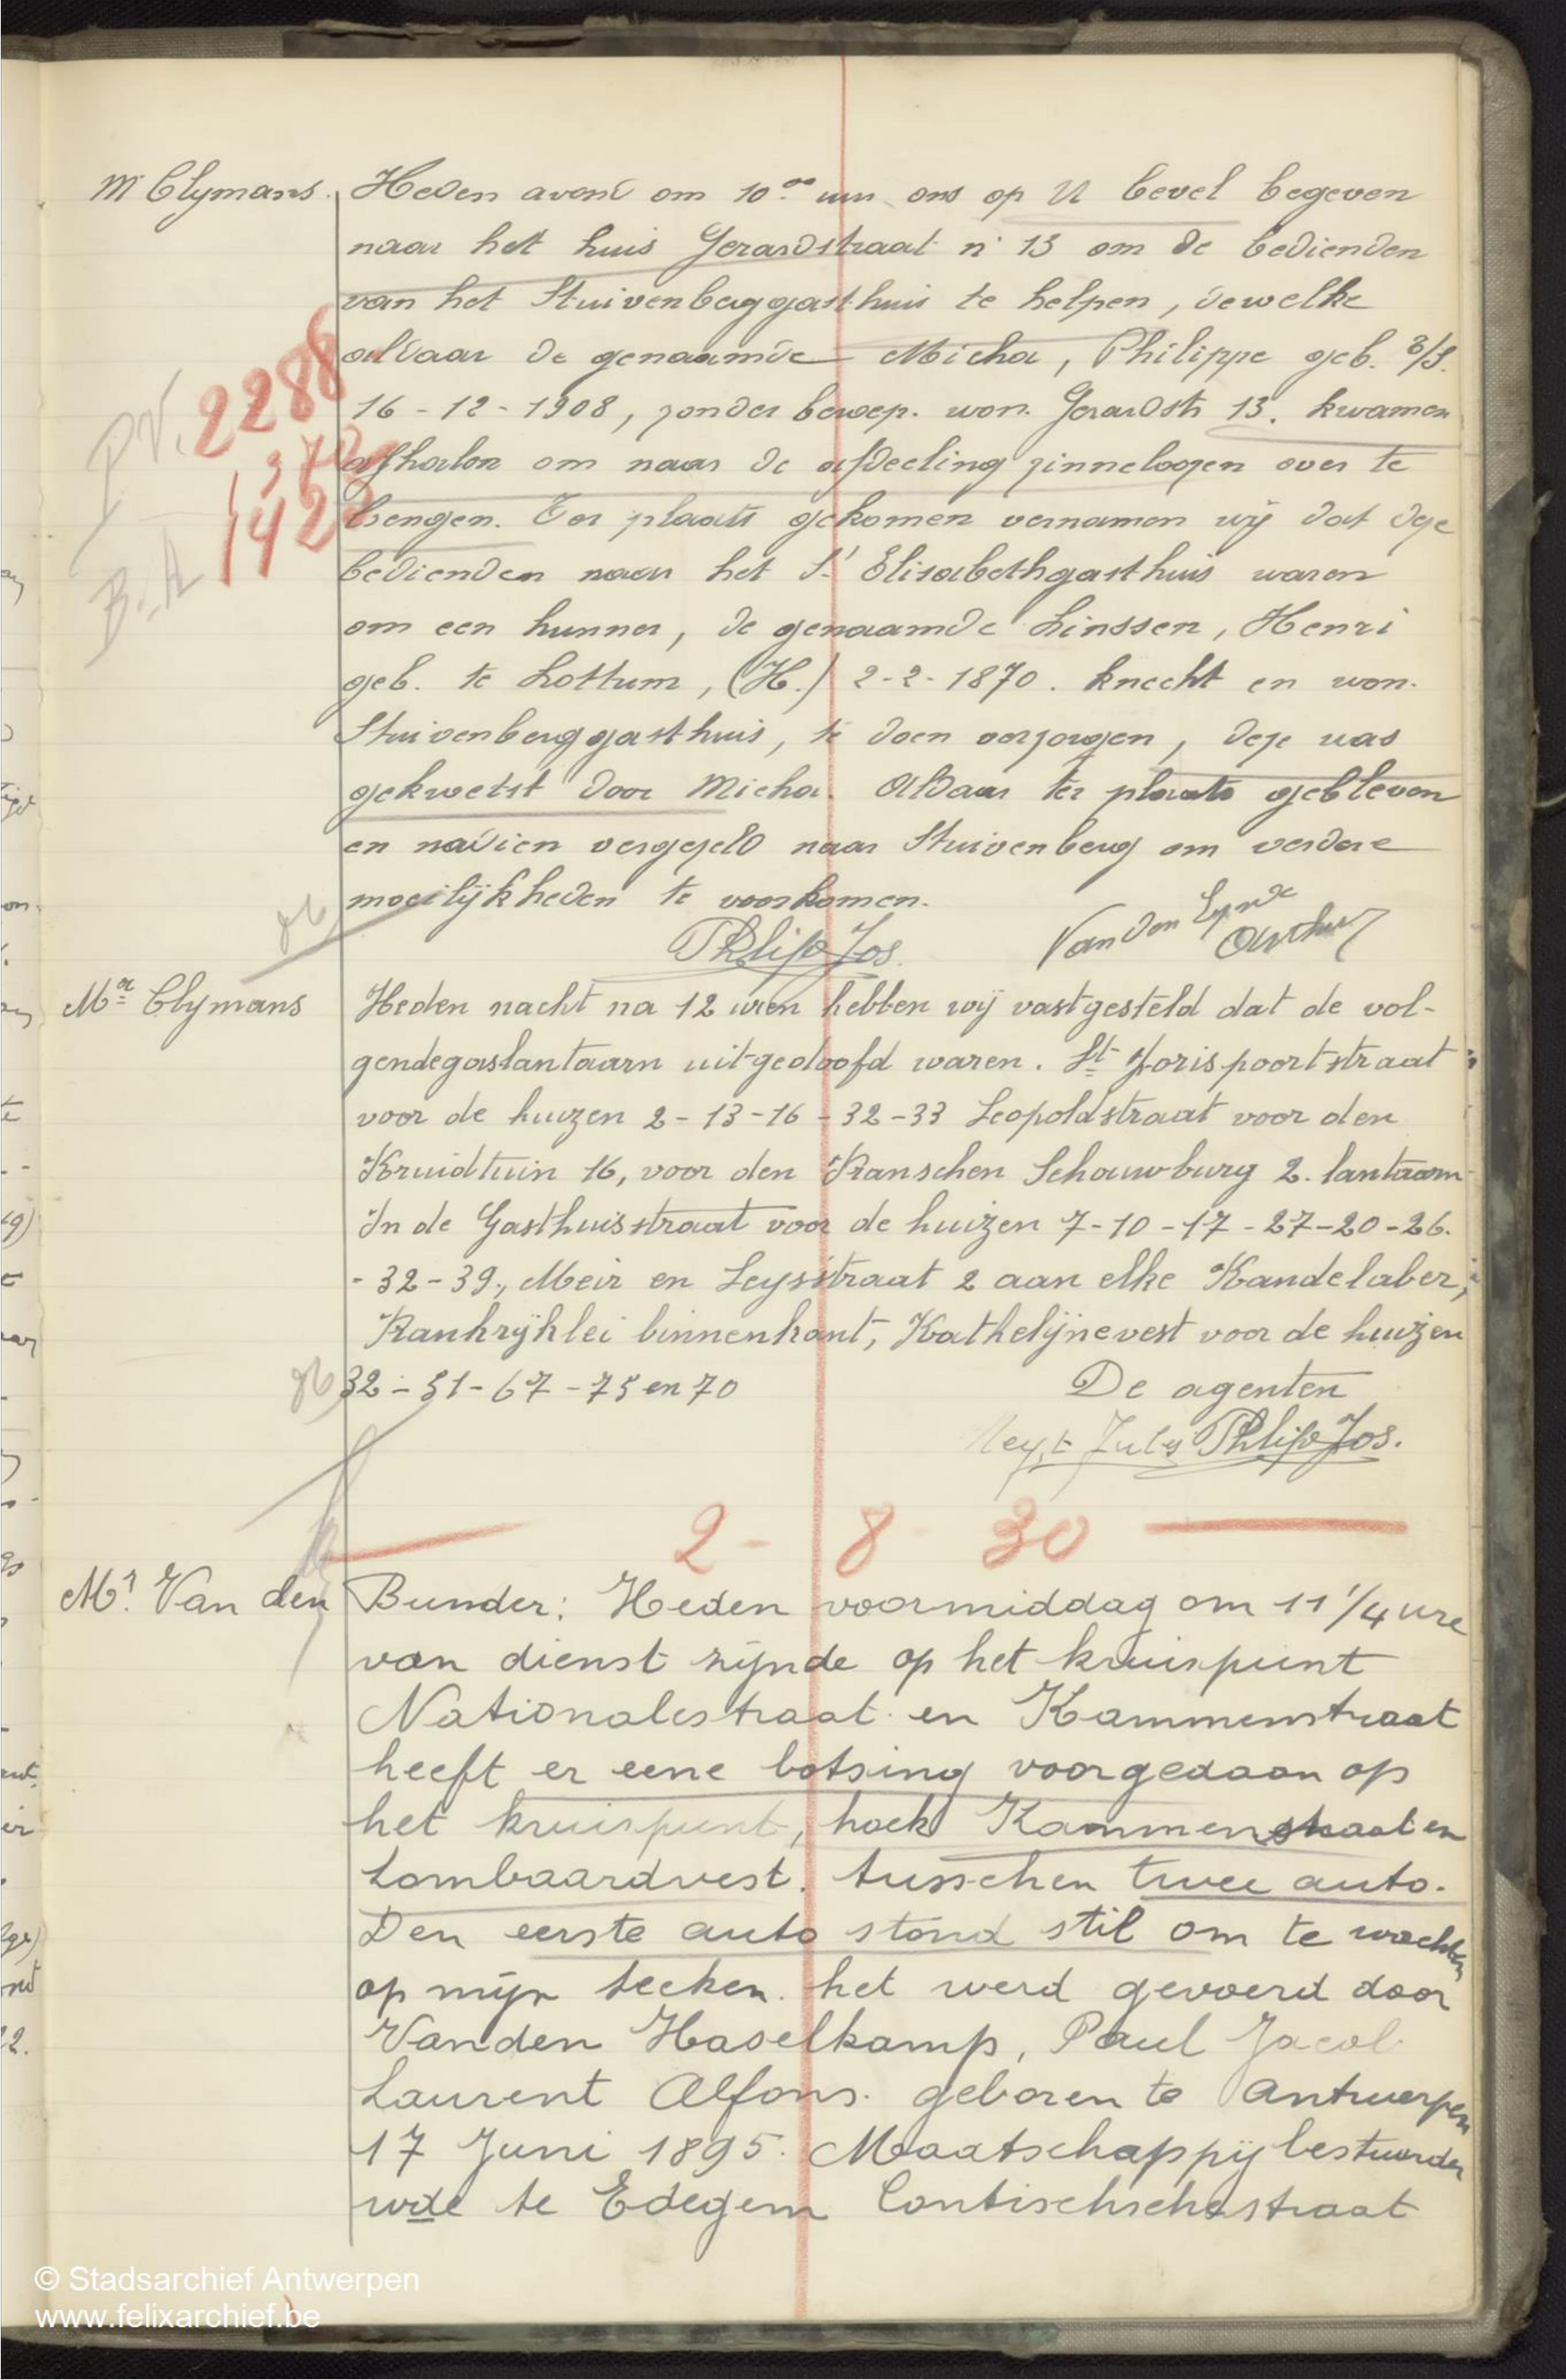 Mr Clymans. Heden avond om 10.00 uur ons op U bevel begeven
naar het huis Gerardstraat n° 13 om de bedienden
van het Stuivenberggasthuis te helpen, dewelke
aldaar de genaamde Micha, Philippe geb. a/s.
16-12-1908, zonder beroep. won. Gerardstr 13. kwamen
afhalen om naar de afdeeling zinneloozen over te
PV. 2288
bengen. Ter plaats gekomen vernamen wij dat deze
B.A 1423
bedienden naar het St Elisabethgasthuis waren
om een hunner, de genaamde Linssen, Henri
geb. te Lottum, (H.) 2-2-1870. knecht en won.
Stuivenberggasthuis, te doen verzorgen, deze was
gekwetst door Micha. Aldaar ter plaats gebleven
en nadien vergezeld naar Stuivenberg om verdere
moeilijkheden te voorkomen.
Philip Jos. Van den Eynde Arthur
Mr Clymans Heden nacht na 12 uren hebben wij vastgesteld dat de vol-
gendegaslantaarn uitgedoofd waren. St Jorispoortstraat
voor de huizen 2-13-16-32-33 Leopoldstraat voor den
Kruidtuin 16, voor den Franschen Schouwburg 2. lantaarn
In de Gasthuisstraat voor de huizen 7-10-17-27-20-26.
-32-39., Meir en Leysstraat 2 aan elke Kandelaber,
Frankrijklei binnenkant, Kathelijnevest voor de huizen
32-51-67-75 en 70 De agenten
Jules Philip Jos.
2- 8 30
Mr. Van den Bunder: Heden voormiddag om 11 1/4 ure
van dienst zijnde op het kruispunt
Nationalestraat en Kammenstraat
heeft er eene botsing voorgedaan op
het kruispunt, hoek Kammenstraat en
Lombaardvest. tusschen twee auto.
Den eerste auto stond stil om te wachten
op mijn teeken. het werd gevoerd door
Vanden Haselkamp, Paul Jacob
Laurent Alfons. geboren te Antwerpen
17 Juni 1895. Maatschappijbestuurder
wde te Edegem Contischschestraat
© Stadsarchief Antwerpen
www.felixarchief.be